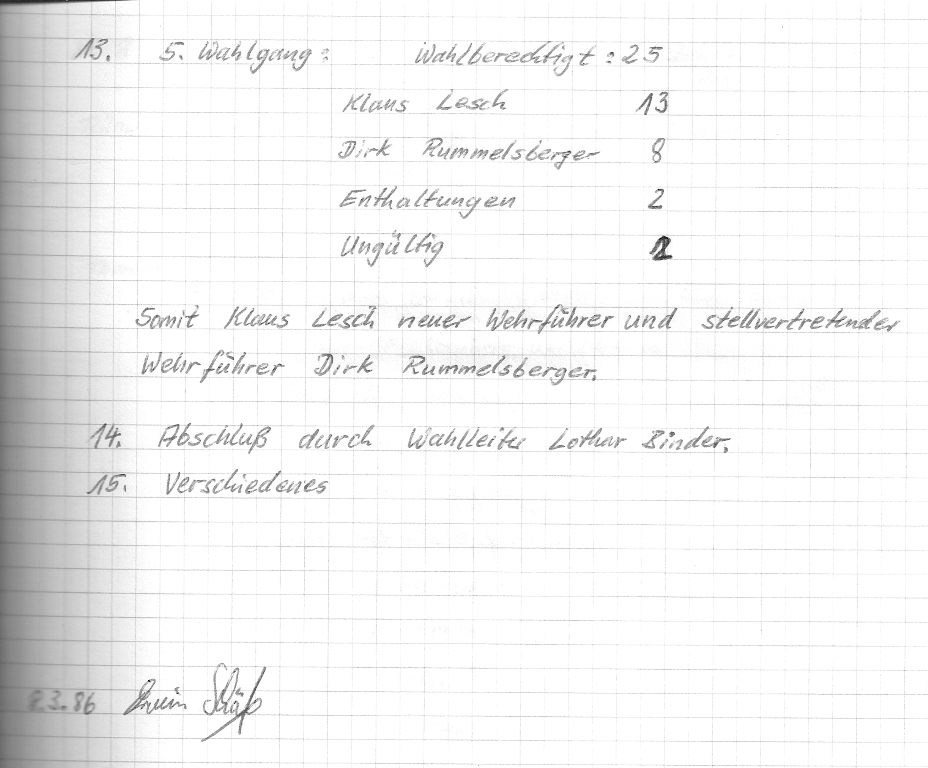 13. 5. Wahlgang: Wahlberechtigt: 25
Klaus Lesch 13
Dirk Rummelsberger 8
Enthaltungen 2
Ungültig 2
Somit Klaus Lesch neuer Wehrführer und stellvertretender
Wehrführer Dirk Rummelsberger.
14. Abschluß durch Wahlleiter Lothar Binder.
15. Verschiedenes
.3.86